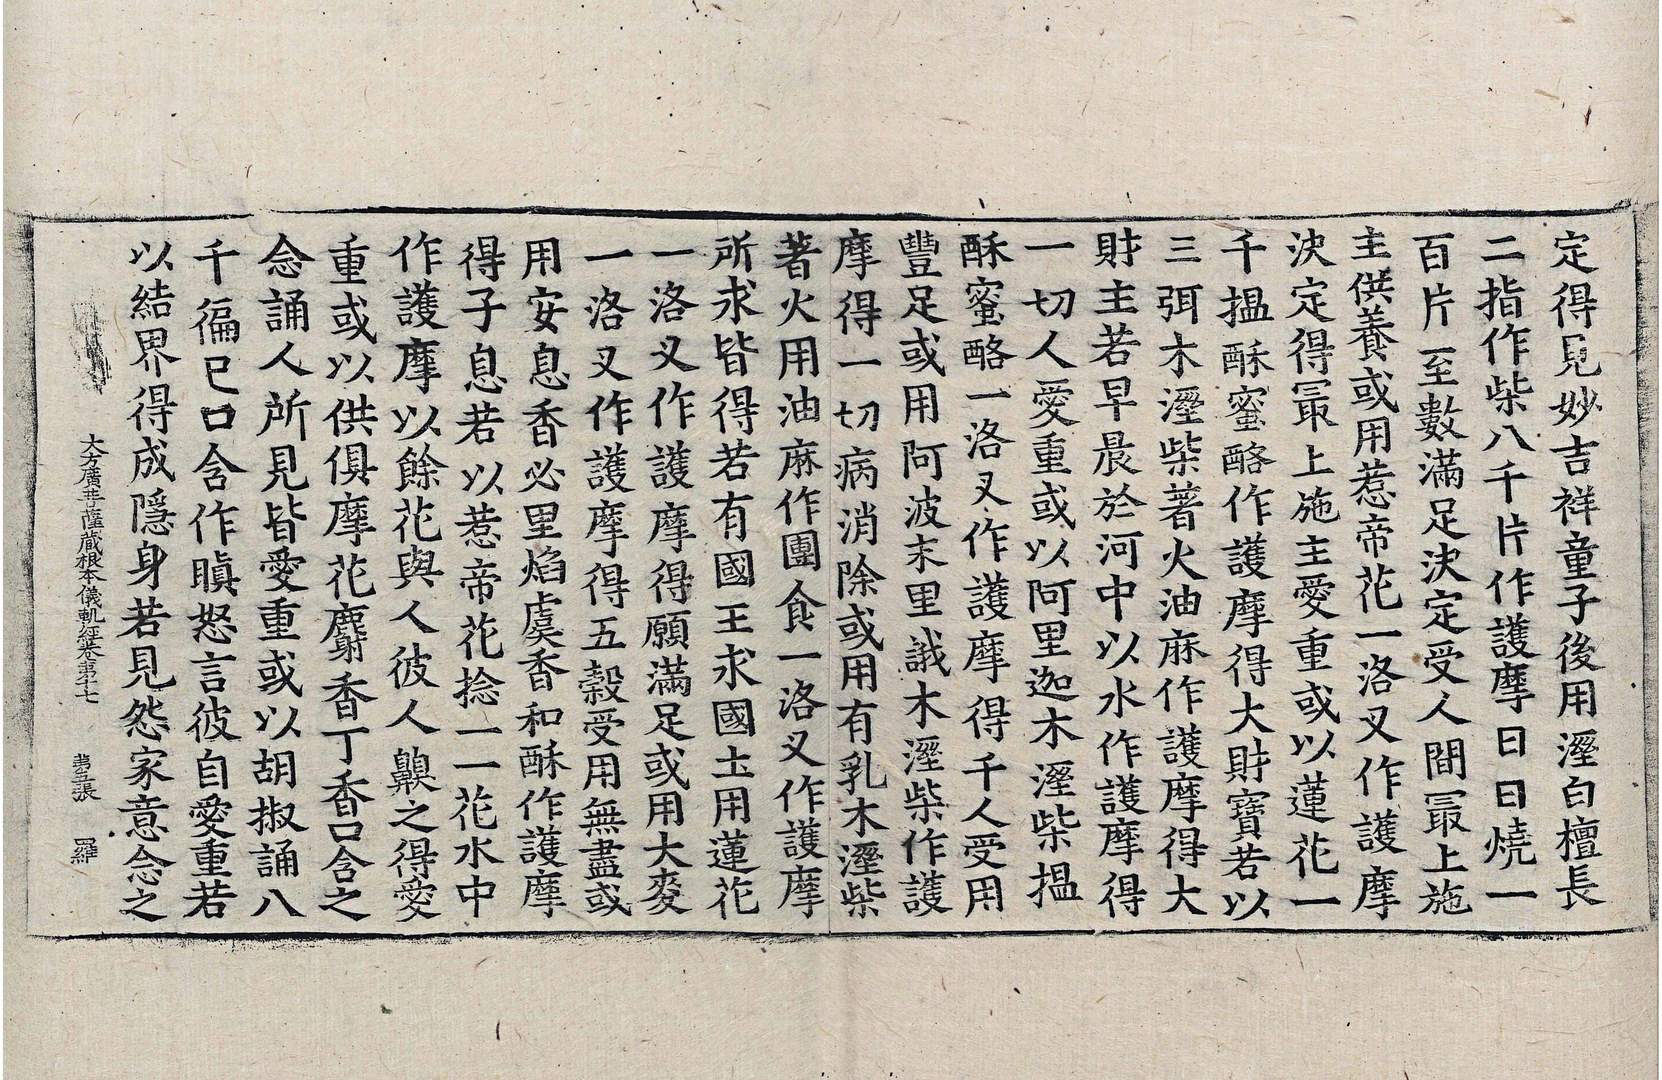 定得見妙吉祥童子後用溼白檀長
二指作柴八千片作護摩日日燒一
百片至數滿足決定受人間冣上施
主供養或用惹帝花一洛叉作護摩
決定得冣上施主愛重或以蓮花一
千搵酥蜜酪作護摩得大財寶若以
三弭木溼柴著火油麻作護摩得大
財主若早晨於河中以水作護摩得
一切人愛重或以阿里迦木溼柴搵
酥蜜酪一洛叉作護摩得千人受用
豐足或用阿波末里誐木溼柴作護
摩得一切病消除或用有乳木溼柴
著火用油麻作團食一洛叉作護摩
所求皆得若有國王求國土用蓮花
一洛叉作護摩得願滿足或用大麥
一洛叉作護摩得五穀受用無盡或
用安息香必里焰虞香和酥作護摩
得子息若以惹帝花捻一一花水中
作護摩以餘花與人彼人齅之得愛
重或以供俱摩花麝香丁香口含之
念誦人所見皆愛重或以胡椒誦八
千徧已口含作瞋怒言彼自愛重若
以結界得成隱身若見怨家意念之
大方廣菩薩藏根本儀軌經卷第十七 第五張 羅